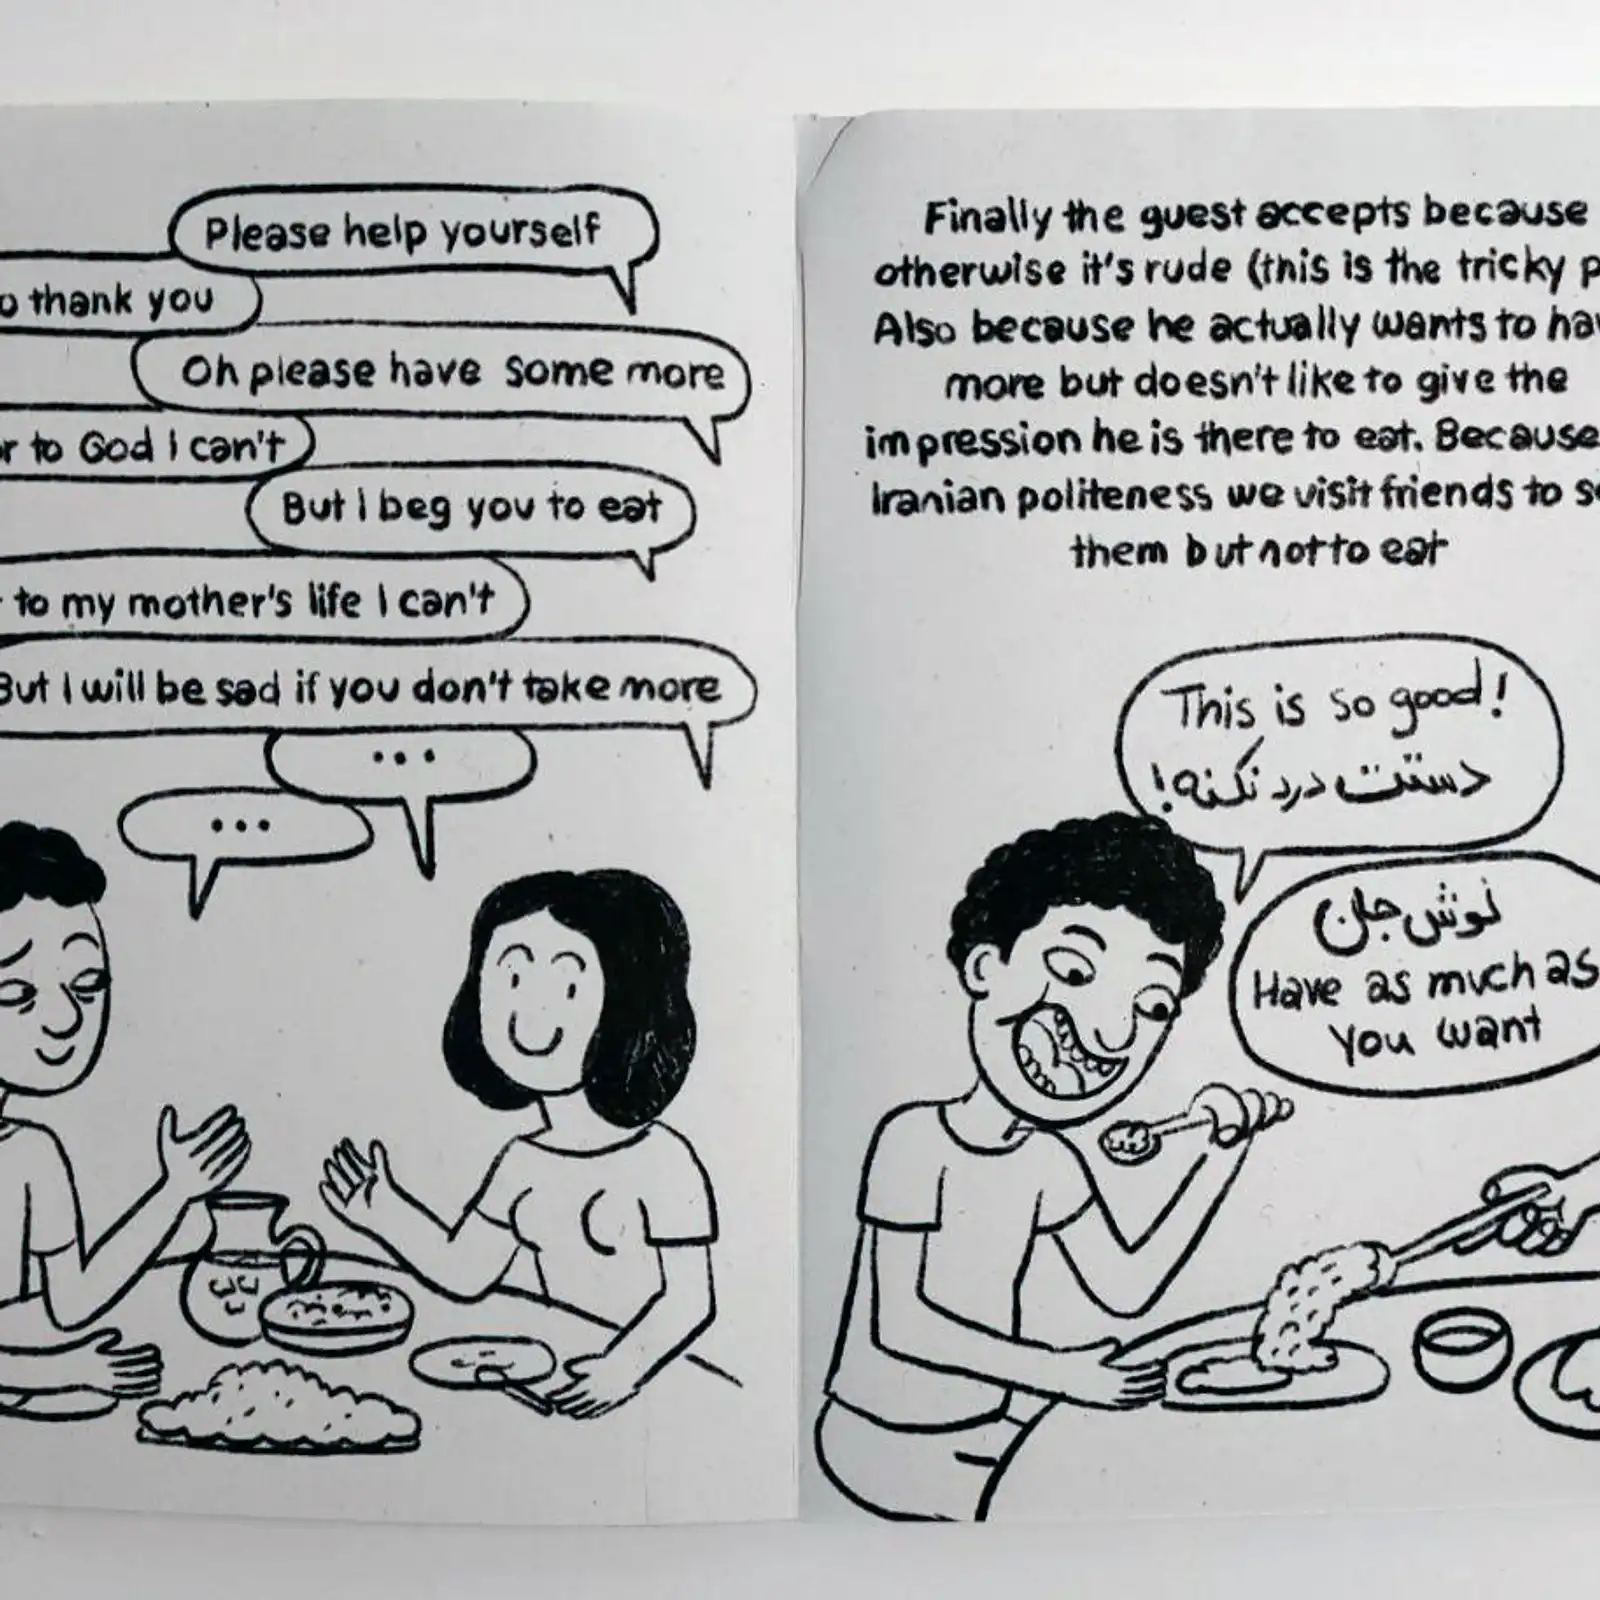 Please help yourself
thank you
Oh please have some more
to God I can't
But I beg you to eat
to my mother's life I can't
But I will be sad if you don't take more
...
...
Finally the guest accepts because
otherwise it's rude (this is the tricky
Also because he actually wants to
more but doesn't like to give the
impression he is there to eat. Because
Iranian politeness we visit friends to
them but not to eat
This is so good!
دستت درد نکنه!
نوش جان
Have as much as
you want